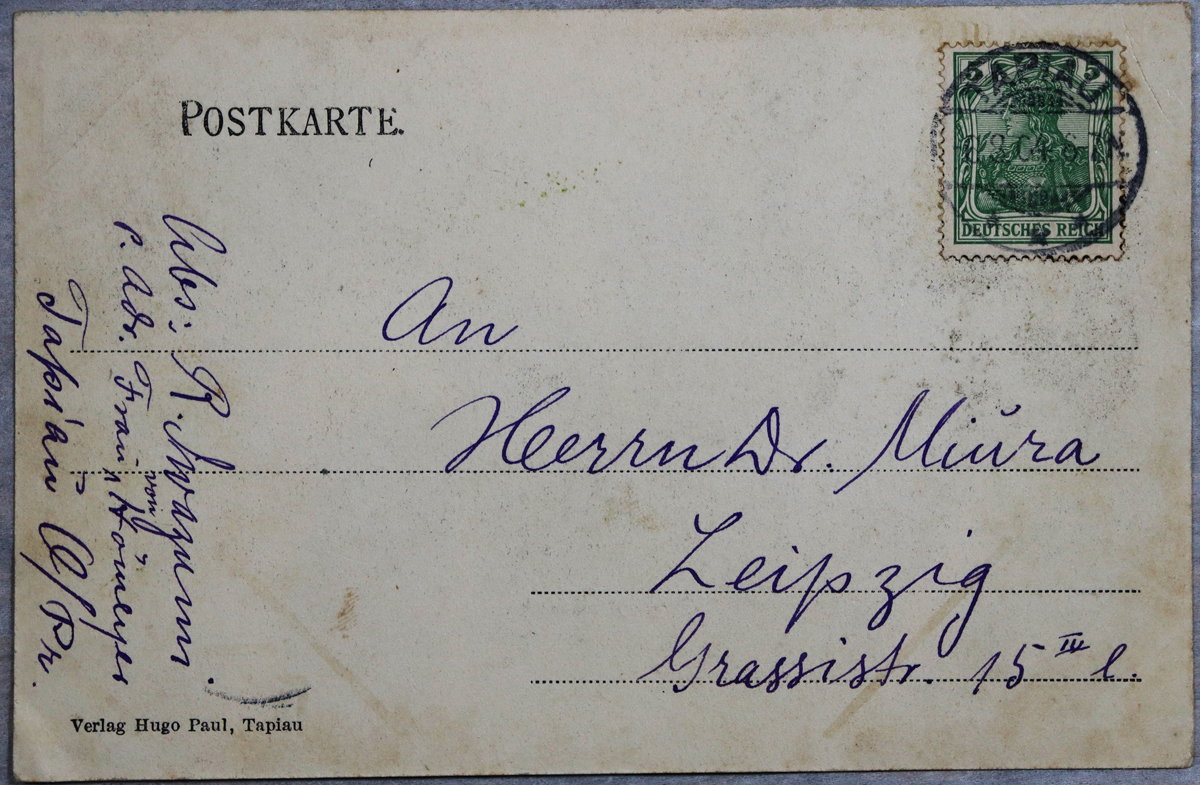 POSTKARTE.
5 5
TAPIAU
DEUTSCHES REICH
An
Herrn Dr. Miura
Leipzig
Grassistr. 15 III l.
Abs: R.
p. Adr. Frau von Hömeyer
Tapiau O/Pr.
Verlag Hugo Paul, Tapiau